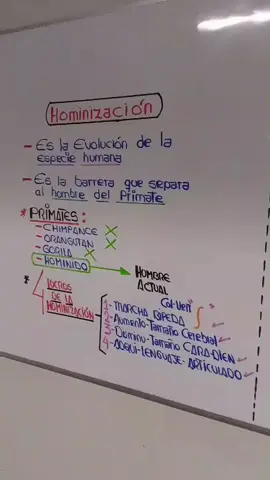 Hominización
- Es la Evolución de la
especie humana
- Es la barrera que separa
al hombre del Primate
* PRIMATES:
- CHIMPANCE X
- ORANGUTAN X
- GORILA X
- HOMINIDO → HOMBRE
ACTUAL
* 4 LOGROS
DE LA
HOMINIZACIÓN
1- MARCHA BIPEDA
2- Aumento-Tamaño Cerebral
3- Disminu-Tamaño CARA-DIEN
4- ADQUI-LENGUAJE-ARTICULADO